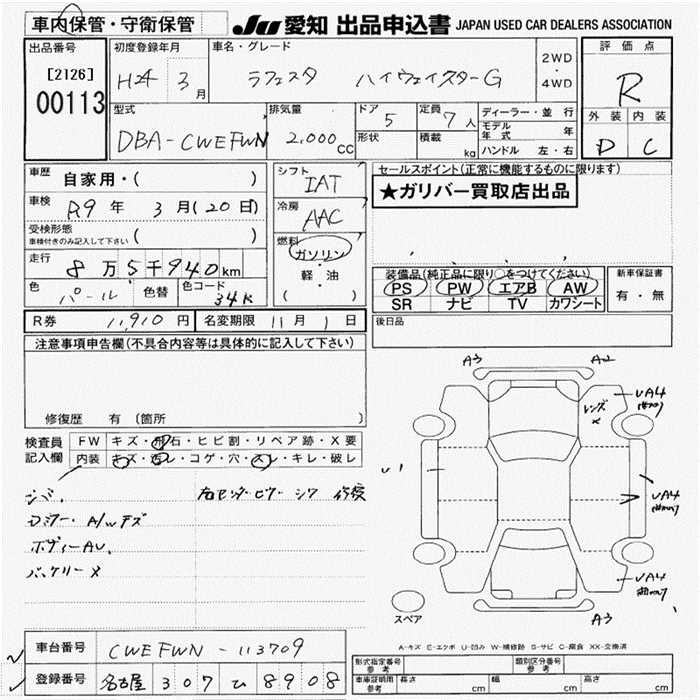 車内保管・守衛保管
JU 愛知 出品申込書 JAPAN USED CAR DEALERS ASSOCIATION
出品番号
[2126]
00113
初度登録年月
H24 3月
車名・グレード
ラフェスタ ハイウェイスターG
2WD
・
4WD
評価点
R
外装 内装
D C
型式
DBA-CWEFWN
排気量
2,000 CC
ドア 5
形状
定員 7人
積載 kg
ディーラー・並行
モデル年式 年
ハンドル 左・右
車歴 自家用・( )
車検 R9年 3月(20日)
受検形態
車検付きのみ記入して下さい ( )
走行 8万5千940km
色 パール 色替 色コード 34K
シフト IAT
冷房 AAC
燃料
ガソリン
・
軽・油
( )
セールスポイント(正常に機能するものに限ります)
★ガリバー買取店出品
装備品(純正品に限り○をつけてください)
PS PW エアB AW
SR ナビ TV カワシート
新車保証書
有・無
後日品
R券 11,910円 名変期限 11月1日
注意事項申告欄(不具合内容等は具体的に記入して下さい)
修復歴 有 (箇所 )
検査員
記入欄
FW キズ・飛石・ヒビ割・リペア跡・X要
内装 キズ・汚レ・コゲ・穴・スレ・キレ・破レ
右センターピラー シワ 修復
ボディーAU
バッテリーX
A3 A2
レンズ
X
UA4
U1
UA4
UA4
A3
スペア
A-キズ E-エクボ U-凹み W-補修跡 S-サビ C-腐食 XX-交換済
車台番号 CWEFWN-113709
登録番号 名古屋 307 ひ 8908
形式指定番号
参考
類別区分番号
参考
車庫証明用
参考
長さ cm 幅 cm 高さ cm